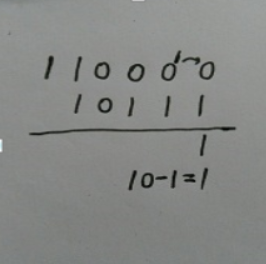 1
1 1 0 0 0 0
1 0 1 1 1
1
10-1=1